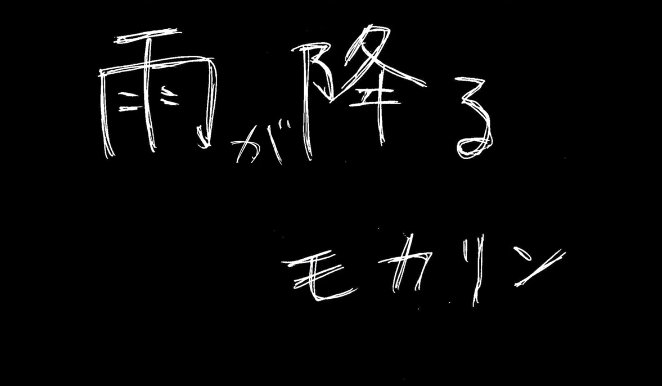 雨が降る
モカリン